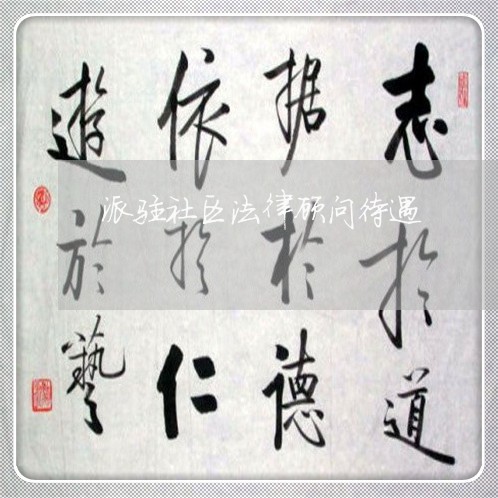 志於道
据於德
依於仁
遊於藝
派驻社区法律顾问待遇